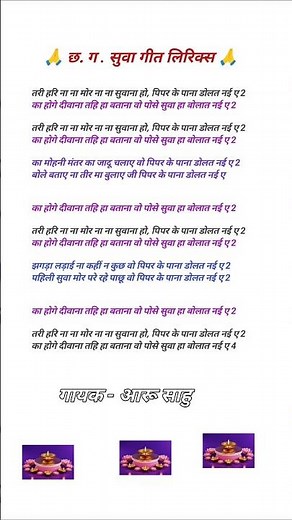 🙏 छ. ग. सुवा गीत लिरिक्स 🙏
तरी हरि ना ना मोर ना ना सुवाना हो, पिपर के पाना डोलत नई ए 2
का होगे दीवाना तहि हा बताना वो पोसे सुवा हा बोलात नई ए 2
तरी हरि ना ना मोर ना ना सुवाना हो, पिपर के पाना डोलत नई ए 2
का होगे दीवाना तहि हा बताना वो पोसे सुवा हा बोलात नई ए 2
का मोहनी मंतर का जादू चलाए वो पिपर के पाना डोलत नई ए 2
बोले बताए ना तीर मा बुलाए जी पिपर के पाना डोलत नई ए
का होगे दीवाना तहि हा बताना वो पोसे सुवा हा बोलात नई ए 2
तरी हरि ना ना मोर ना ना सुवाना हो, पिपर के पाना डोलत नई ए 2
का होगे दीवाना तहि हा बताना वो पोसे सुवा हा बोलात नई ए 2
झगड़ा लड़ाई ना कहीं न कुछ वो पिपर के पाना डोलत नई ए 2
पहिली सुवा मोर परे रहे पाछू वो पिपर के पाना डोलत नई ए 2
का होगे दीवाना तहि हा बताना वो पोसे सुवा हा बोलात नई ए 2
तरी हरि ना ना मोर ना ना सुवाना हो, पिपर के पाना डोलत नई ए 2
का होगे दीवाना तहि हा बताना वो पोसे सुवा हा बोलात नई ए 4
गायक - आरू साहु